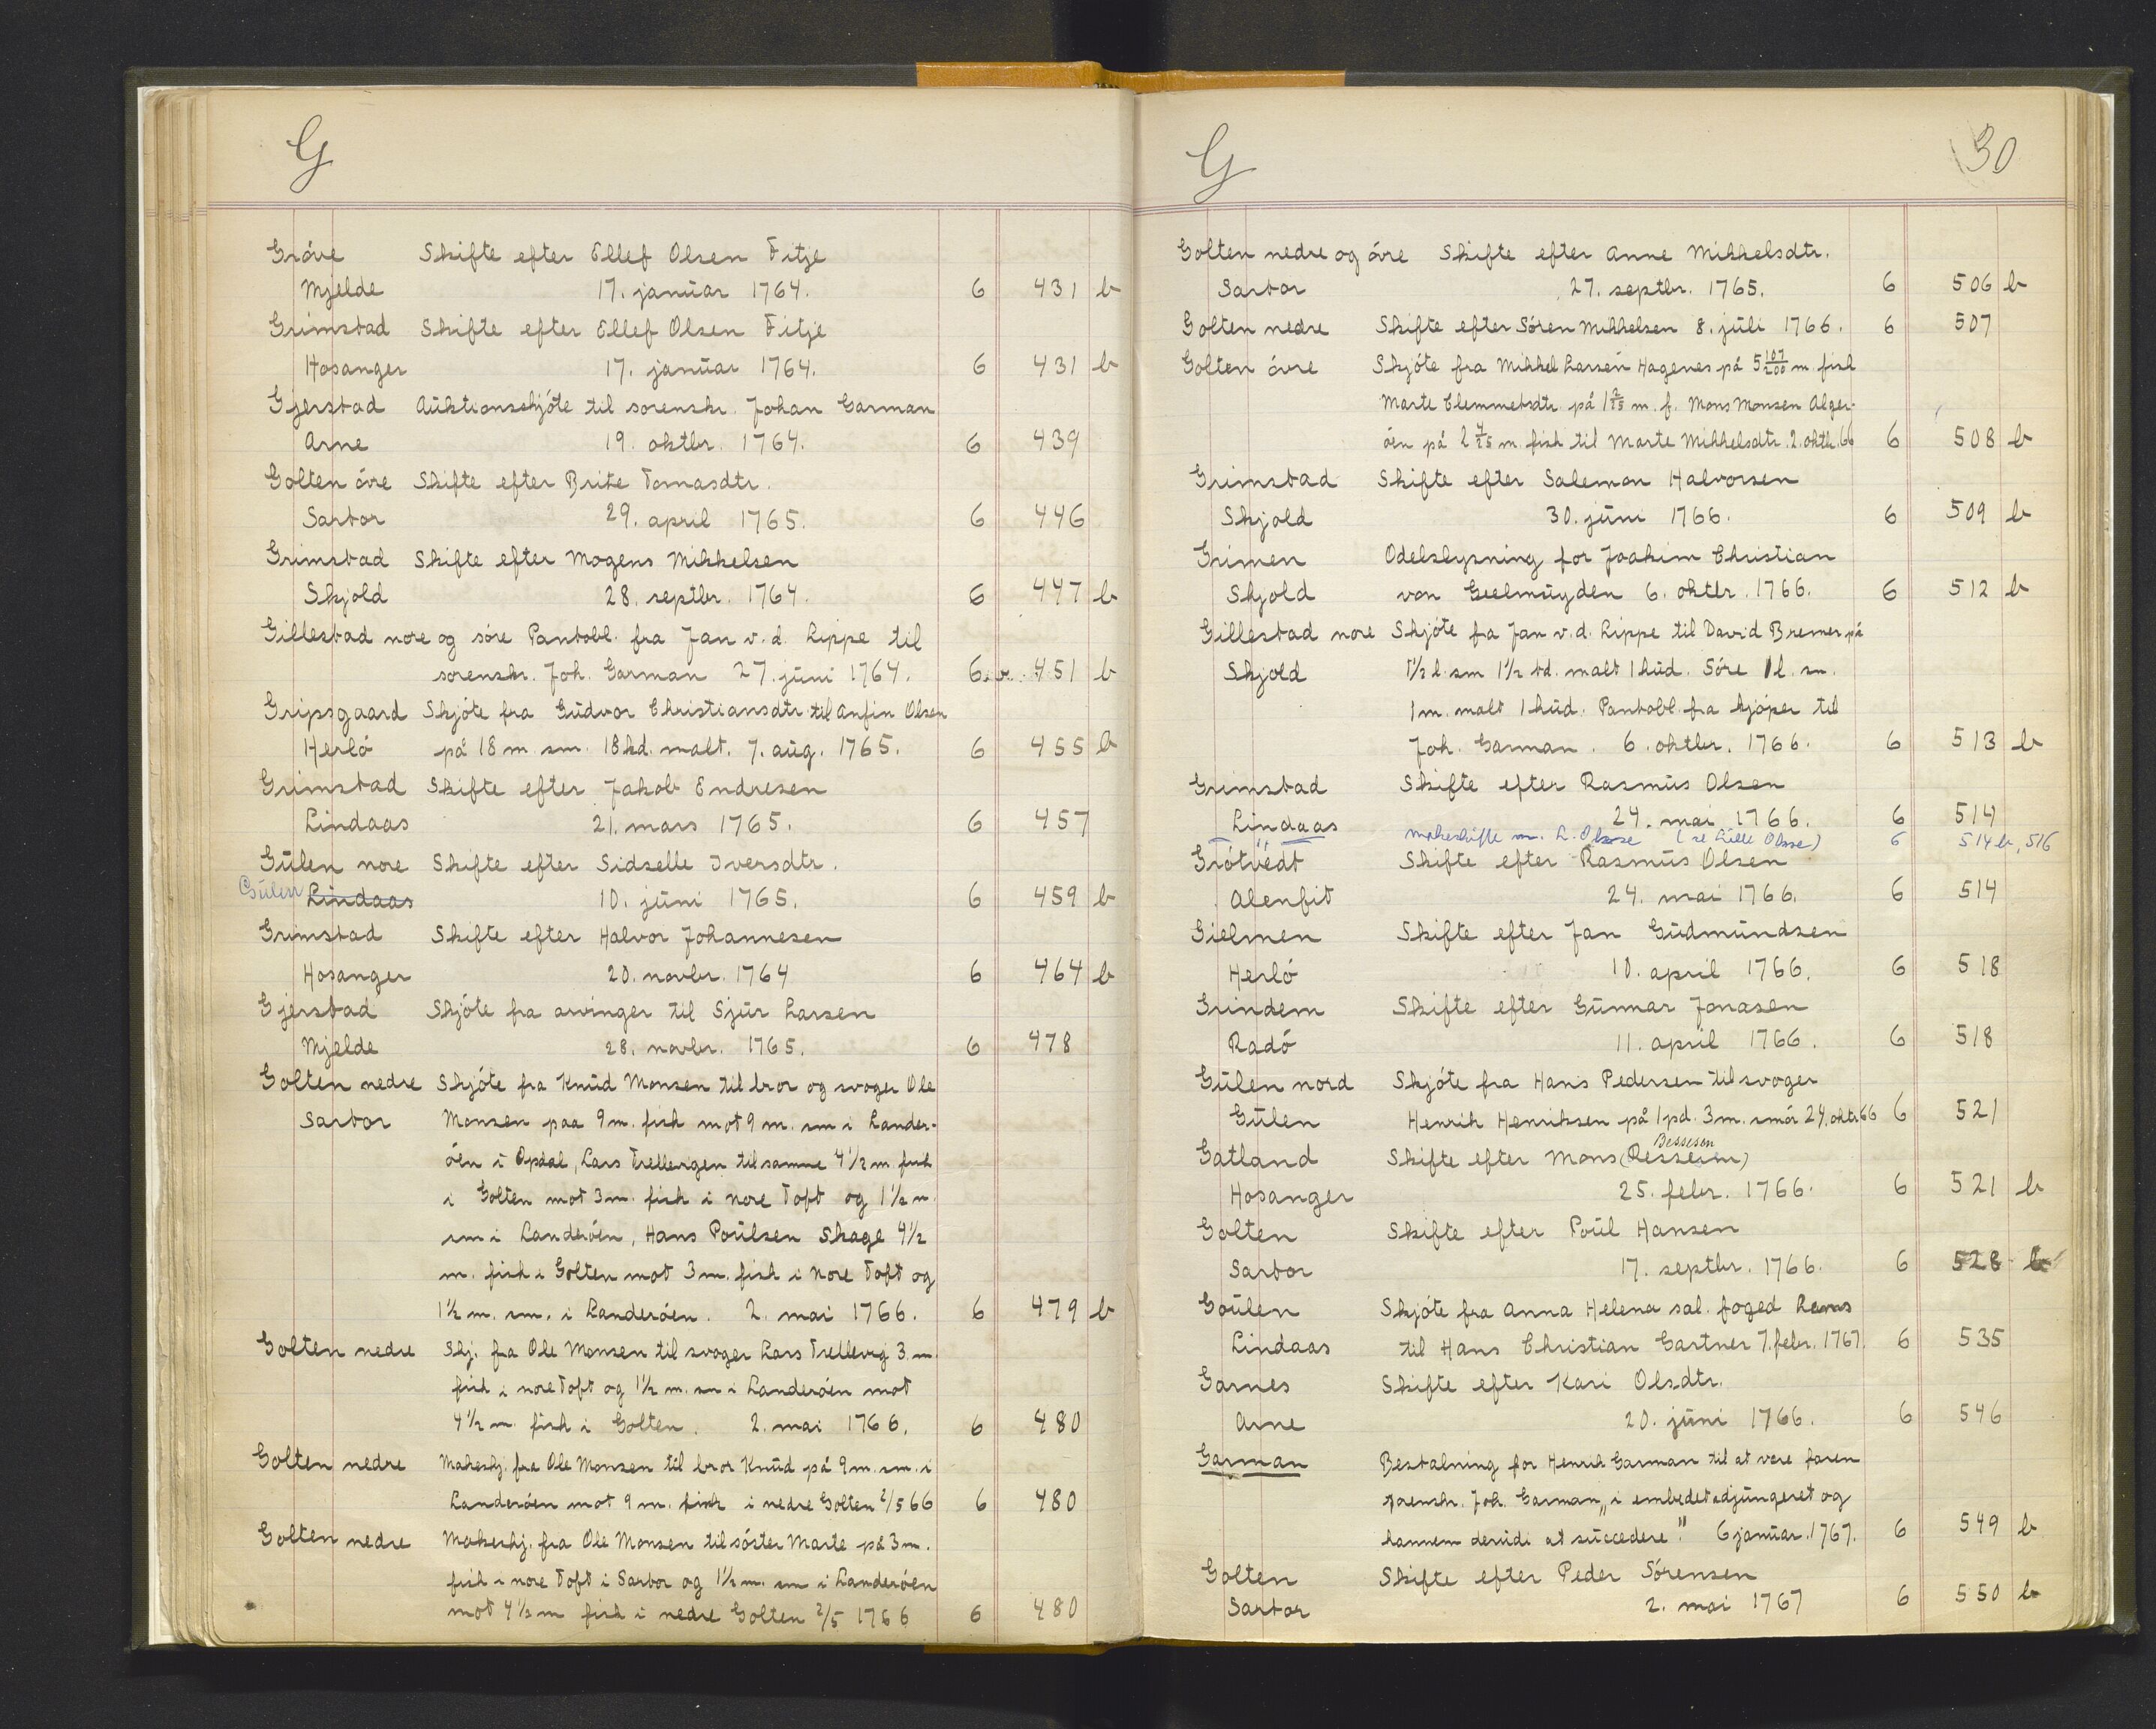 G
Gróve Skifte efter Ellef Olsen Fitje
Mjelde 17. januar 1764. 6 431 b
Grimstad Skifte efter Ellef Olsen Fitje
Hosanger 17. januar 1764. 6 431 b
Gjerstad Auktionsskjóte til sorenskr. Johan Garman
Arne 19. oktbr. 1764. 6 439
Golten óvre Skifte efter Brite Tomasdtr.
Sartor 29. april 1765. 6 446
Grimstad Skifte efter Mogens Mikkelsen
Skjold 28. septbr. 1764. 6 447 b
Gillestad nore og sóre Pantobl. fra Jan v. d. Lippe til
sorenskr. Joh. Garman 27. juni 1764. 6 451 b
Gripsgaard Skjóte fra Gudvor Christiansdtr. til Anfin Olsen
Herló på 18 m. sm. 18 kd. malt. 7. aug. 1765. 6 455 b
Grimstad Skifte efter Jakob Endresen
Lindaas 21. mars 1765. 6 457
Gulen nore Skifte efter Sidselle Iversdtr.
Gulen Lindaas 10. juni 1765. 6 459 b
Grimstad Skifte efter Halvor Johannesen
Hosanger 20. novbr. 1764 6 464 b
Gjerstad Skjóte fra arvinger til Sjur Larsen
Mjelde 28. novbr. 1765. 6 478
Golten nedre Skjóte fra Knud Monsen til bror og svoger Ole
Sartor Monsen paa 9 m. fisk mot 9 m. sm i Lander-
óen i Opdal, Lars Trellevigen til samme 4 1/2 m. fisk
i Golten mot 3 m. fisk i nore Toft og 1 1/2 m.
sm i Landeróen, Hans Poulsen Skage 4 1/2
m. fisk i Golten mot 3 m. fisk i nore Toft og
1 1/2 m. sm. i Landeróen. 2. mai 1766. 6 479 b
Golten nedre Skj. fra Ole Monsen til svoger Lars Trellevig 3 m.
fisk i nore Toft og 1 1/2 m. sm i Landeróen mot
4 1/2 m. fisk i Golten. 2. mai 1766. 6 480
Golten nedre Makeskj. fra Ole Monsen til bror Knud på 9 m. sm. i
Landeróen mot 9 m. fisk i nedre Golten 2/5 66 6 480
Golten nedre Makeskj. fra Ole Monsen til sóster Marte på 3 m.
fisk i nore Toft i Sartor og 1 1/2 m. sm i Landeróen
mot 4 1/2 m fisk i nedre Golten 2/5 1766 6 480
G 30
Golten nedre og óvre Skifte efter Anne Mikkelsdtr.
Sartor 27. septbr. 1765. 6 506 b
Golten nedre Skifte efter Sóren Mikkelsen 8. juli 1766. 6 507
Golten óvre Skjóte fra Mikkel Larsen Hagenes på 5 107/200 m. fisk
Marte Clemmetsdtr. på 1 2/25 m. f. Mons Monsen Alger-
óen på 2 4/25 m. fisk til Marte Mikkelsdtr. 2. oktb. 66 6 508 b
Grimstad Skifte efter Salemon Halvorsen
Skjold 30. juni 1766. 6 509 b
Grimen Odelslysning for Joakim Christian
Skjold von Geelmuyden 6. oktbr. 1766. 6 512 b
Gillestad nore Skjóte fra Jan v. d. Lippe til David Bremer på
Skjold 1 1/2 l. sm 1 1/2 td. malt 1 hud. Sóre 1 l. sm.
1 m. malt 1 hud. Pantobl. fra kjóper til
Joh. Garman. 6. oktbr. 1766. 6 513 b
Grimstad Skifte efter Rasmus Olsen
Lindaas 24. mai 1766. 6 514
makeskifte m. L. Okse (se Lille Okse) 6 514 b, 516
Grótvedt Skifte efter Rasmus Olsen
Alenfit 24. mai 1766. 6 514
Gielmen Skifte efter Jan Gudmundsen
Herló 10. april 1766. 6 518
Grindem Skifte efter Gunnar Jonasen
Radó 11. april 1766. 6 518
Gulen nord Skjóte fra Hans Pedersen til svoger
Gulen Henrik Henriksen på 1 pd. 3 m. smór 24. oktr 66 6 521
Bessesen
Gatland Skifte efter Mons (Ressesen)
Hosanger 25. febr. 1766. 6 521 b
Golten Skifte efter Poul Hansen
Sartor 17. septbr. 1766. 6 528 b
Goulen Skjóte fra Anna Helena sal. foged Lems
Lindaas til Hans Christian Gartner 7. febr. 1767. 6 535
Garnes Skifte efter Kari Olsdtr.
Arne 20. juni 1766. 6 546
Garman Bestalning for Henrik Garman til at vere faren
sorenskr. Joh. Garman „i embedet adjungeret og
hannem derudi at succedere." 6 januar. 1767. 6 549 b
Golten Skifte efter Peder Sórensen
Sartor 2. mai 1767 6 550 b